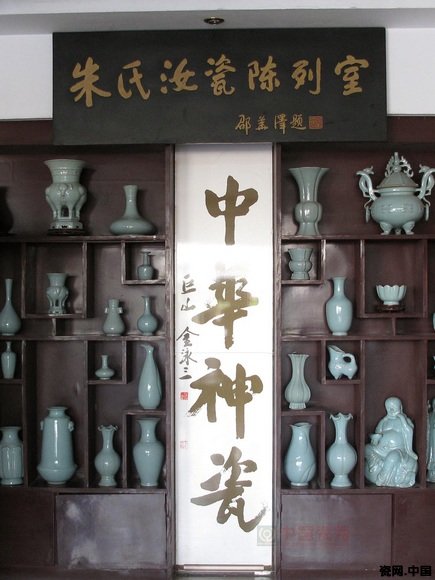 朱氏汝瓷陈列室
邵华泽题
中华神瓷
巨山 金泳三
瓷网.中国